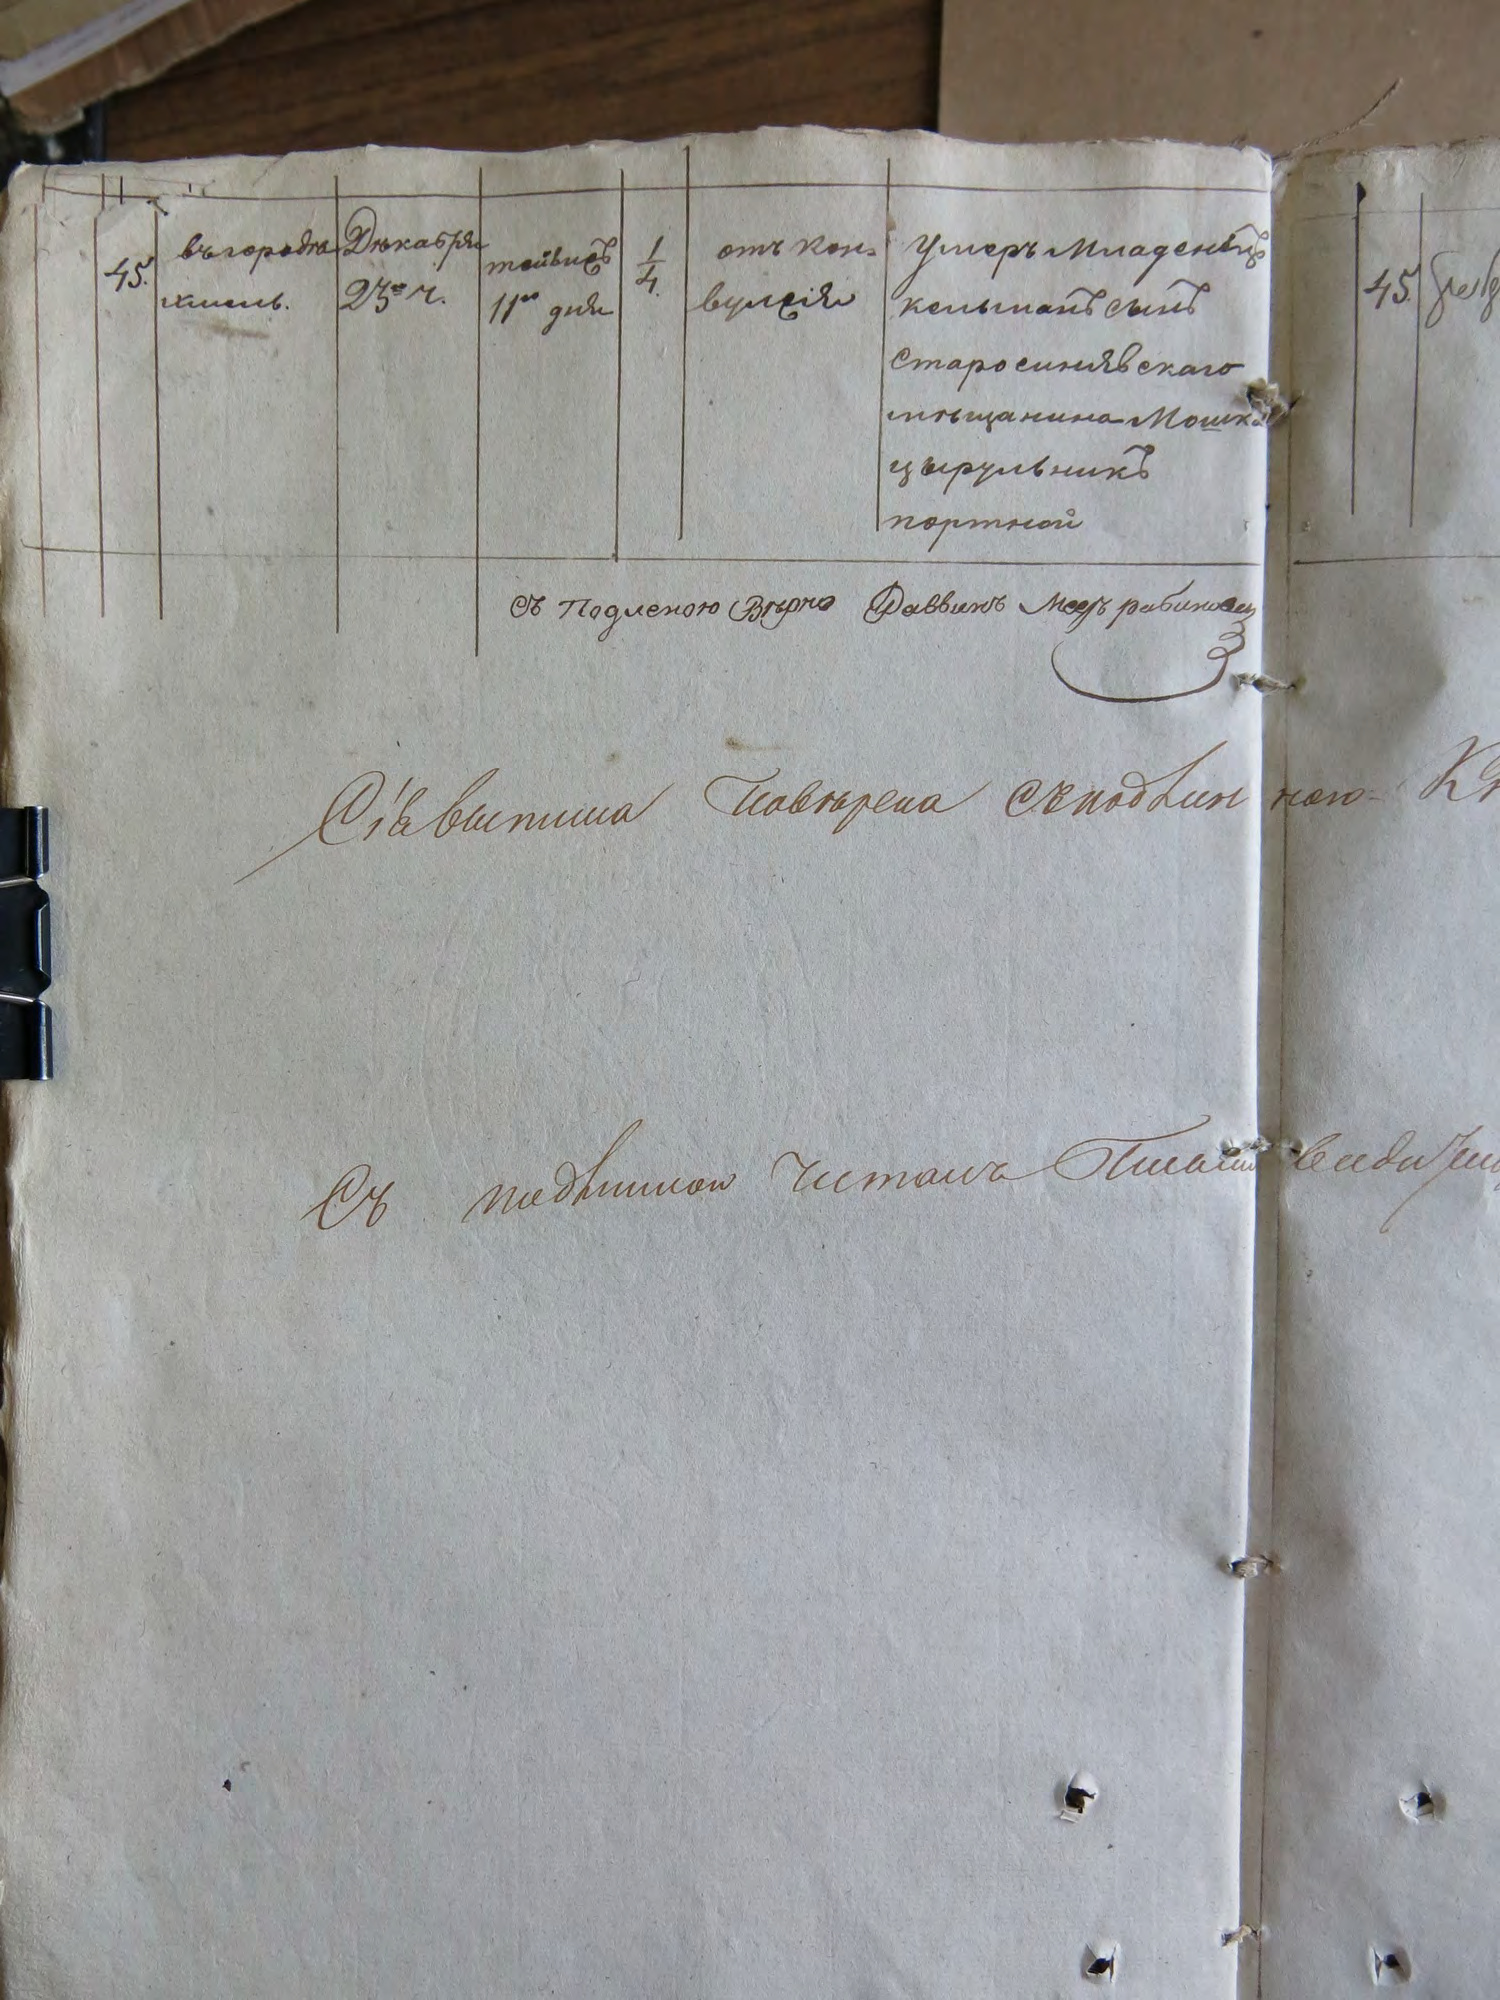 45.
въ городѣ
хмель.
Декабря
23го ч.
тейвисъ
11го дня
1/4.
отъ кон-
вулсія
Умеръ Младенецъ
кельманъ сынъ
Старосинявскаго
мѣщанина Мошка
цырульникъ
портной
45.
Съ Подленою Вѣрно Раввинъ Меръ рабинович
Сія выписка повѣрена съ подлин ною
Съ подлиной читалъ